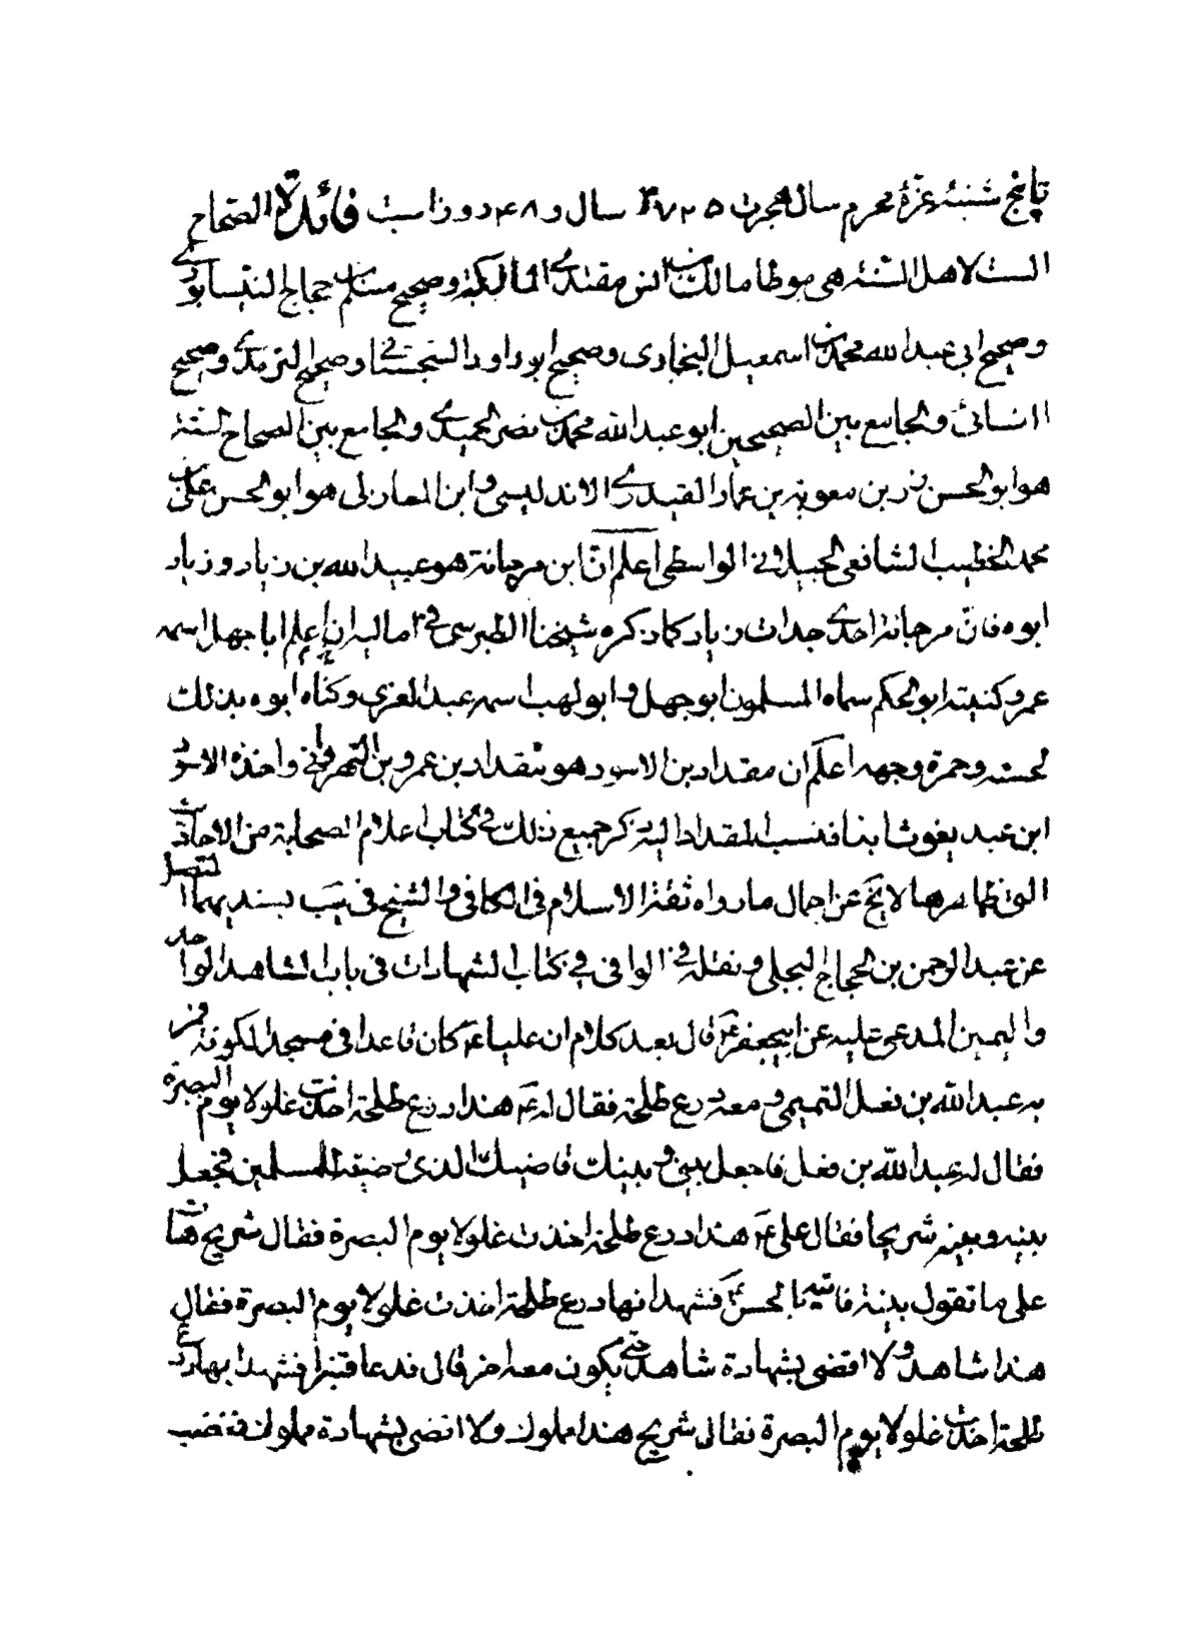 تا پنج شنبه غرّهٔ محرم سال هجرت ٣٧٢٥ سال و ٤٨ دوز است فائدة الصّحاح
الست لاهل السّنة هى موطا مالك بن انس مقتدى المالكية وصحيح مسلم بن حجاج النيسابورى
وصحيح ابى عبد الله محمد بن اسمعيل البخارى وصحيح ابو داود السجستانى وصحيح الترمذى وصحيح
النسائى والجامع بين الصحيحين ابو عبد الله محمد بن نصر الحميدى والجامع بين الصحاح الستة
هو ابو الحسن زر بن معوية بن عمار العبدرى الاندلسى وابن المعازلى هو ابو الحسن على بن
محمد الخطيب الشافعى الواسطى اعلم انّ ابن مرجانة هو عبيد الله بن زياد و زياد
ابوه فانّ مرجانة احدى جدات زياد كما ذكره شيخنا الطبرسى فى اماليه اعلم ان ابا جهل اسمه
عمرو كنيته ابو الحكم سماه المسلمون ابو جهل و ابو لهب اسمه عبد العزى و كناه ابوه بذلك
لحسنه وحمرة وجهه اعلم ان مقداد بن الاسود هو مقداد بن عمرو بن البهرانى واخذه الاسود
ابن عبد يغوث ابنا فنسب المقداد اليه ذكر جميع ذلك فى كتاب اعلام الصحابة من الاحاديث
التى ظاهرها لا يخ عن اجمال ما رواه ثقة الاسلام فى الكافى والشيخ فى يب بسنديهما المتصل
عن عبد الرحمن بن الحجاج البجلى ونقله فى الوافى فى كتاب الشهادات فى باب الشاهد الواحد
واليمين المدعى عليه عن ابيجعفر ع قال بعد كلام ان عليا ع كان قاعدا فى مسجد الكوفة فمر
به عبد الله بن نفل التميمى ومعه درع طلحة فقال له ع هذا درع طلحة اخذت غلولا يوم البصرة
فقال له عبد الله بن فعل فاجعل بينى وبينك قاضيك الذى رضيته للمسلمين فجعل
بينه وبينه شريحا فقال على ع هذا درع طلحة اخذت غلولا يوم البصرة فقال شريح هات
على ما تقول بينة فاتيه بالحسن ع فشهد انها درع طلحة اخذت غلولا يوم البصرة فقال
هذا شاهد ولا اقضى بشهادة شاهد حتى يكون معه اخر قال فدعا قنبرا فشهد انها درع
طلحة اخذت غلولا يوم البصرة فقال شريح هذا مملوك ولا اقضى بشهادة مملوك فغضب